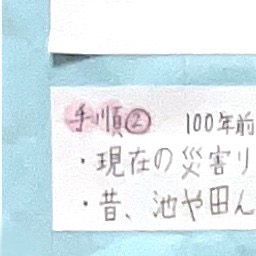 手順② 100年前
・現在の災害リ
・昔、池や田ん